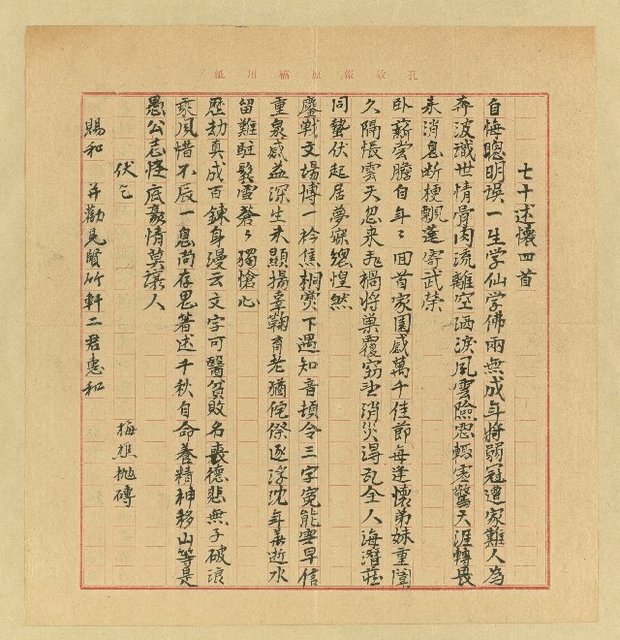 孔教報原稿用紙
七十述懷四首
自悔聰明誤一生学仙学佛兩無成年將弱冠遭家難人為
奔波識世情骨肉流離空洒淚風雲險惡輒害驚天涯轉畏
來消息斷梗飄蓬寄武榮
臥薪嘗膽自年々回首家園感萬千佳節每逢懷弟妹重闈
久隔悵雲天忽來飛禍將巢覆竊望消災得瓦全人海潛莊
同蟄伏起居夢寐總惶然
鏖戰文場博一衿焦桐爨下遇知音頓令三字冤能雪早信
重泉感益深生未顯揚辜鞠育老猶侘傺逐浮沈年華逝水
留難駐鬢雪磐々獨愴心
歷劫真成百鍊身漫云文字可醫貧敗名喪德悲無子破浪
乘風惜不辰一息尚存思著述千秋自命養精神移山等是
愚公志怪底豪情莫讓人
伏乞
梅樵拋磚
賜和 并勸民賢竹軒二君惠和